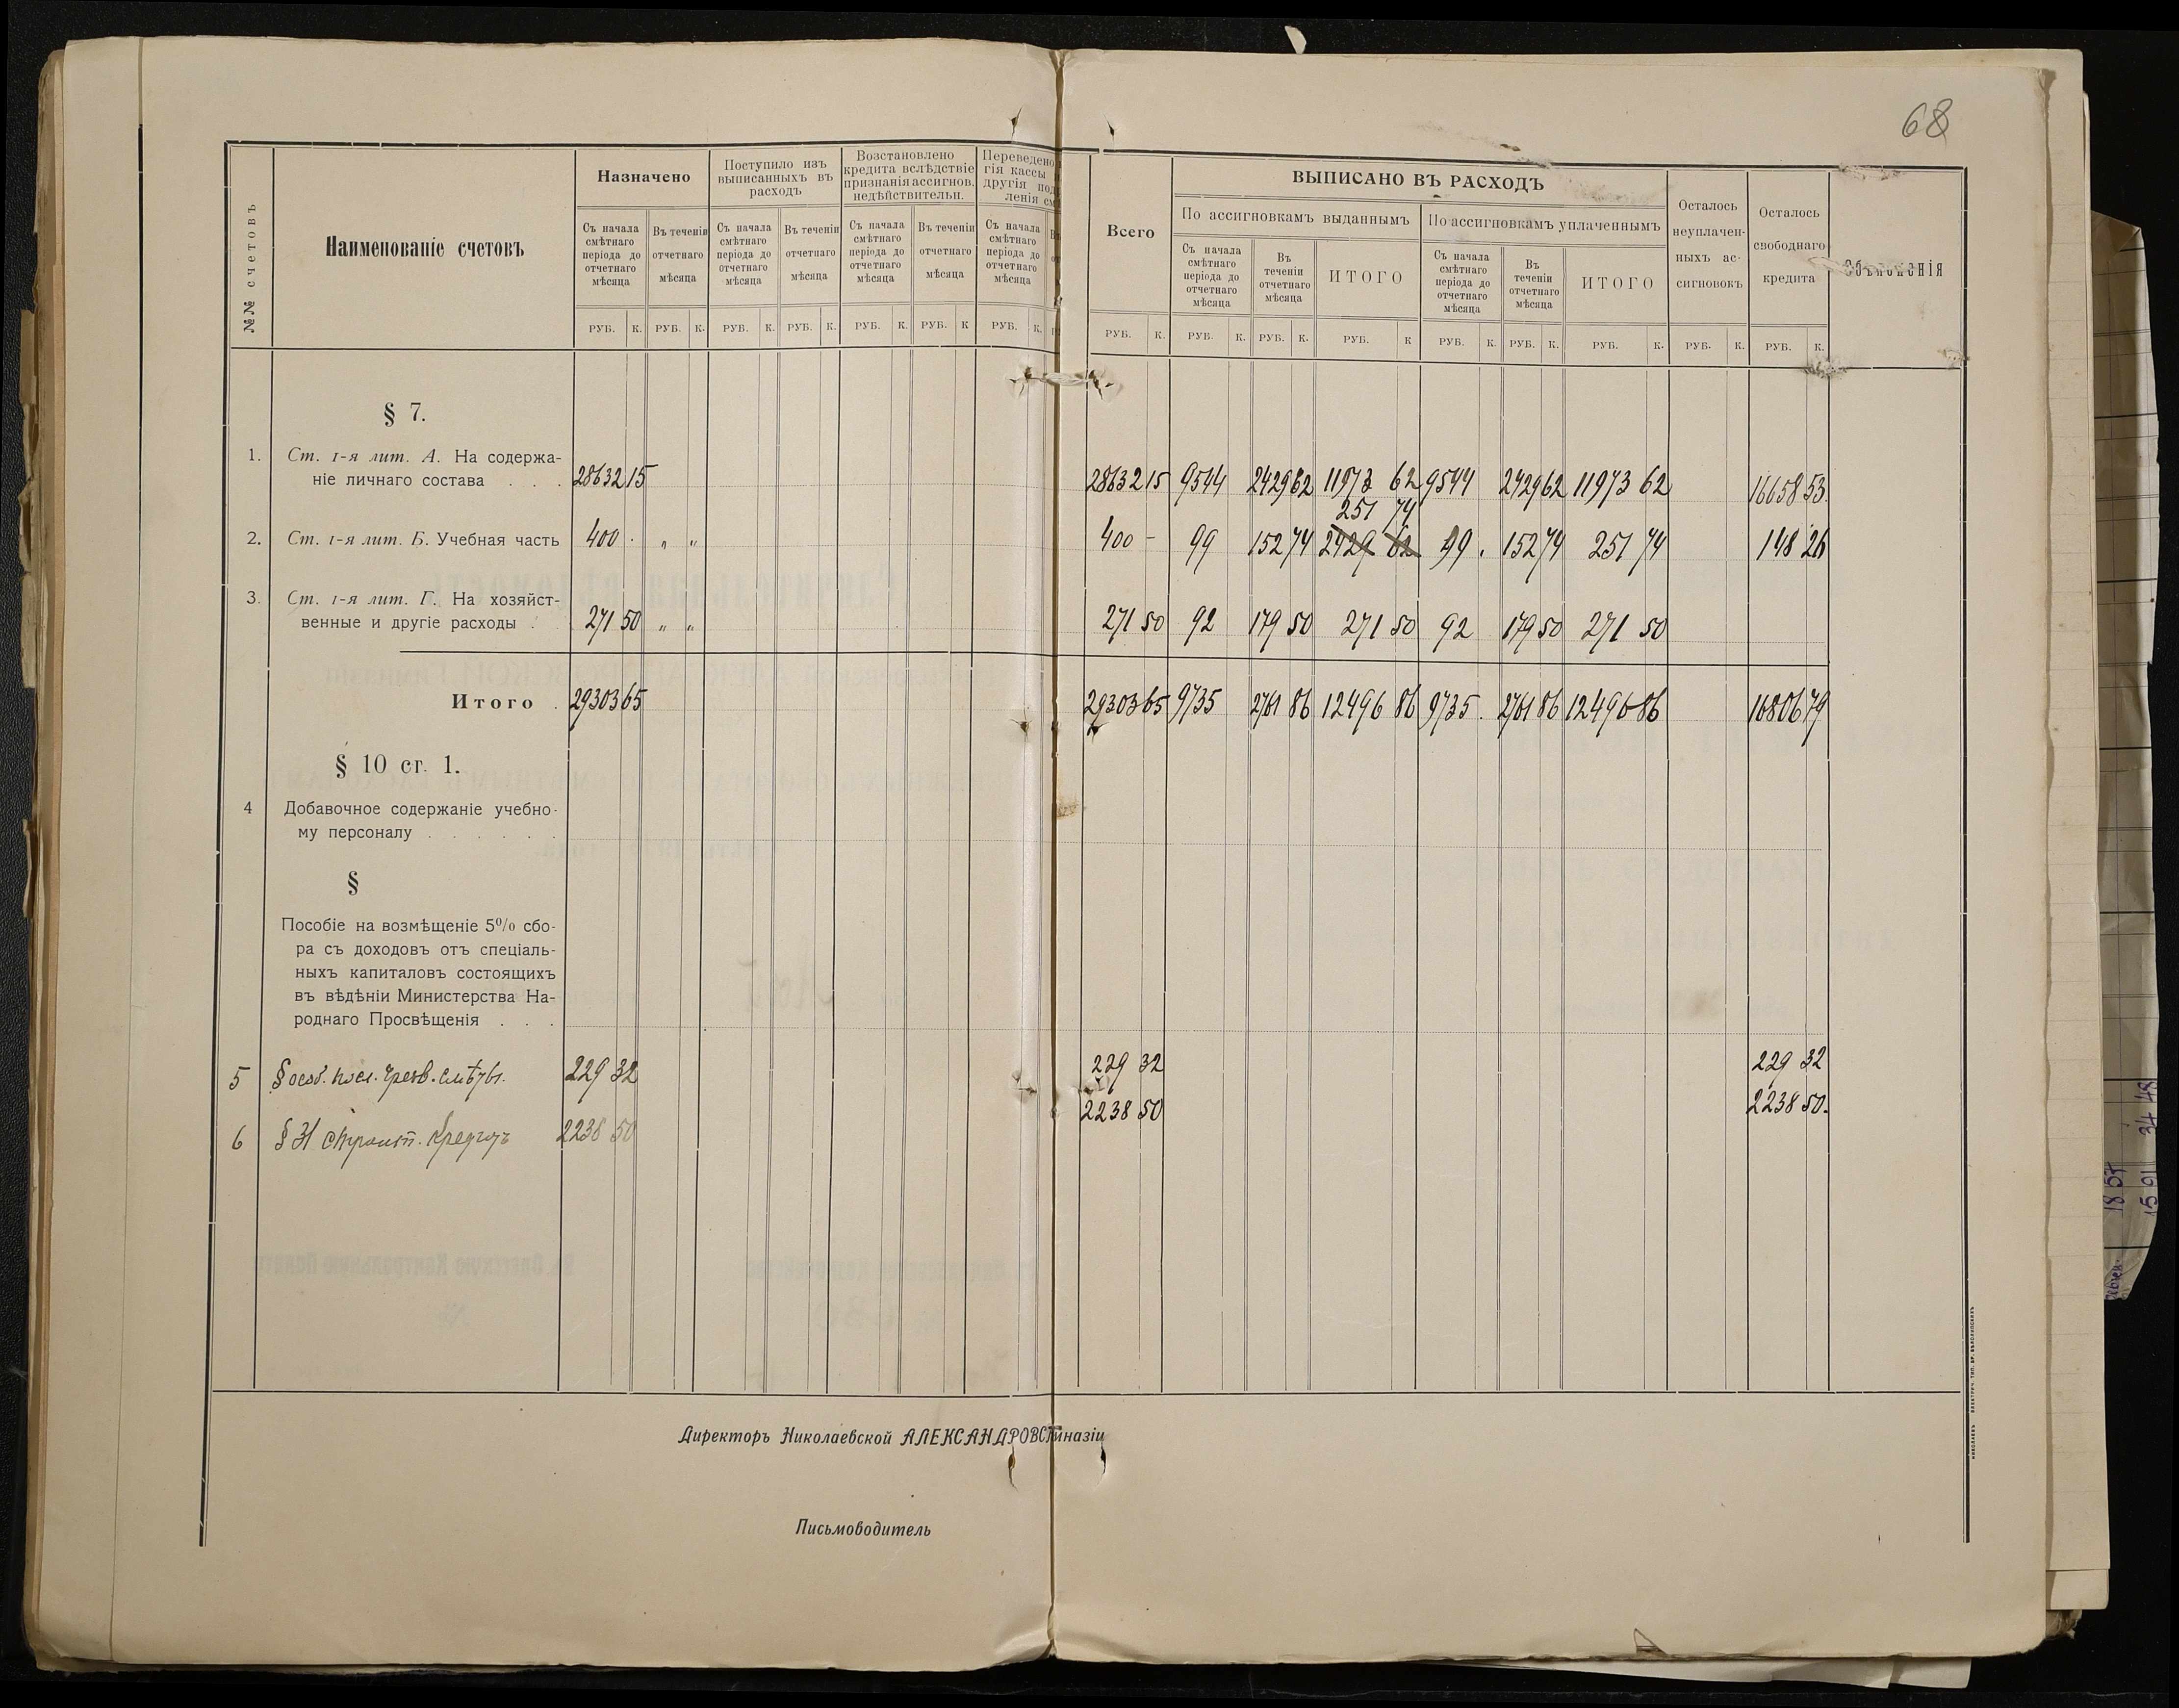 68
№№ счетовъ
Наименованіе счетовъ
Назначено
Поступило изъ
выписанныхъ въ
расходъ
Возстановлено
кредита вслѣдствіе
признанія ассигнов.
недѣйствительн.
Переведено
гія кассы
другія
ленія
Съ начала
смѣтнаго
періода до
отчетнаго
мѣсяца
Въ теченіи
отчетнаго
мѣсяца
Съ начала
смѣтнаго
періода до
отчетнаго
мѣсяца
Въ теченіи
отчетнаго
мѣсяца
Съ начала
смѣтнаго
періода до
отчетнаго
мѣсяца
Въ теченіи
отчетнаго
мѣсяца
Съ начала
смѣтнаго
періода до
отчетнаго
мѣсяца
РУБ. К. РУБ. К. РУБ. К. РУБ. К. РУБ. К. РУБ. К РУБ. К.
Всего
ВЫПИСАНО ВЪ РАСХОДЪ
По ассигновкамъ выданнымъ
По ассигновкамъ уплаченнымъ
Съ начала
смѣтнаго
періода до
отчетнаго
мѣсяца
Въ
теченіи
отчетнаго
мѣсяца
ИТОГО
Съ начала
смѣтнаго
періода до
отчетнаго
мѣсяца
Въ
теченіи
отчетнаго
мѣсяца
ИТОГО
Осталось
неуплачен-
ныхъ ас-
сигновокъ
Осталось
свободнаго
кредита
Объясненія
РУБ. К. РУБ. К. РУБ. К. РУБ. К РУБ. К. РУБ. К. РУБ. К. РУБ. К. РУБ. К.
§ 7.
1. Ст. 1-я лит. А. На содержа-
ніе личнаго состава . . . 28632 15 28632 15 9544 2429 62 11973 62 9544 2429 62 11973 62 16658 53.
251 74
2. Ст. 1-я лит. Б. Учебная часть 400 · „ „ 400 - 99 152 74 2429 62 99 . 152 74 251 74 148 26
3. Ст. 1-я лит. Г. На хозяйст-
венные и другіе расходы . 271 50 „ „ 271 50 92 179 50 271 50 92 179 50 271 50
Итого . 29303 65 29303 65 9735 2761 86 12496 86 9735 . 2761 86 12496 86 16806 79
§ 10 ст. 1.
4 Добавочное содержаніе учебно-
му персоналу . . . . . .
§
Пособіе на возмѣщеніе 5% сбо-
ра съ доходовъ отъ спеціаль-
ныхъ капиталовъ состоящихъ
въ вѣдѣніи Министерства На-
роднаго Просвѣщенія . . .
5 § 229 32 229 32 229 32
6 § 31 строит. кредитъ 2238 50 2238 50 2238 50.
Директоръ Николаевской АЛЕКСАНДРОВС
имназіи
Письмоводитель
18 57
34 48
15 91